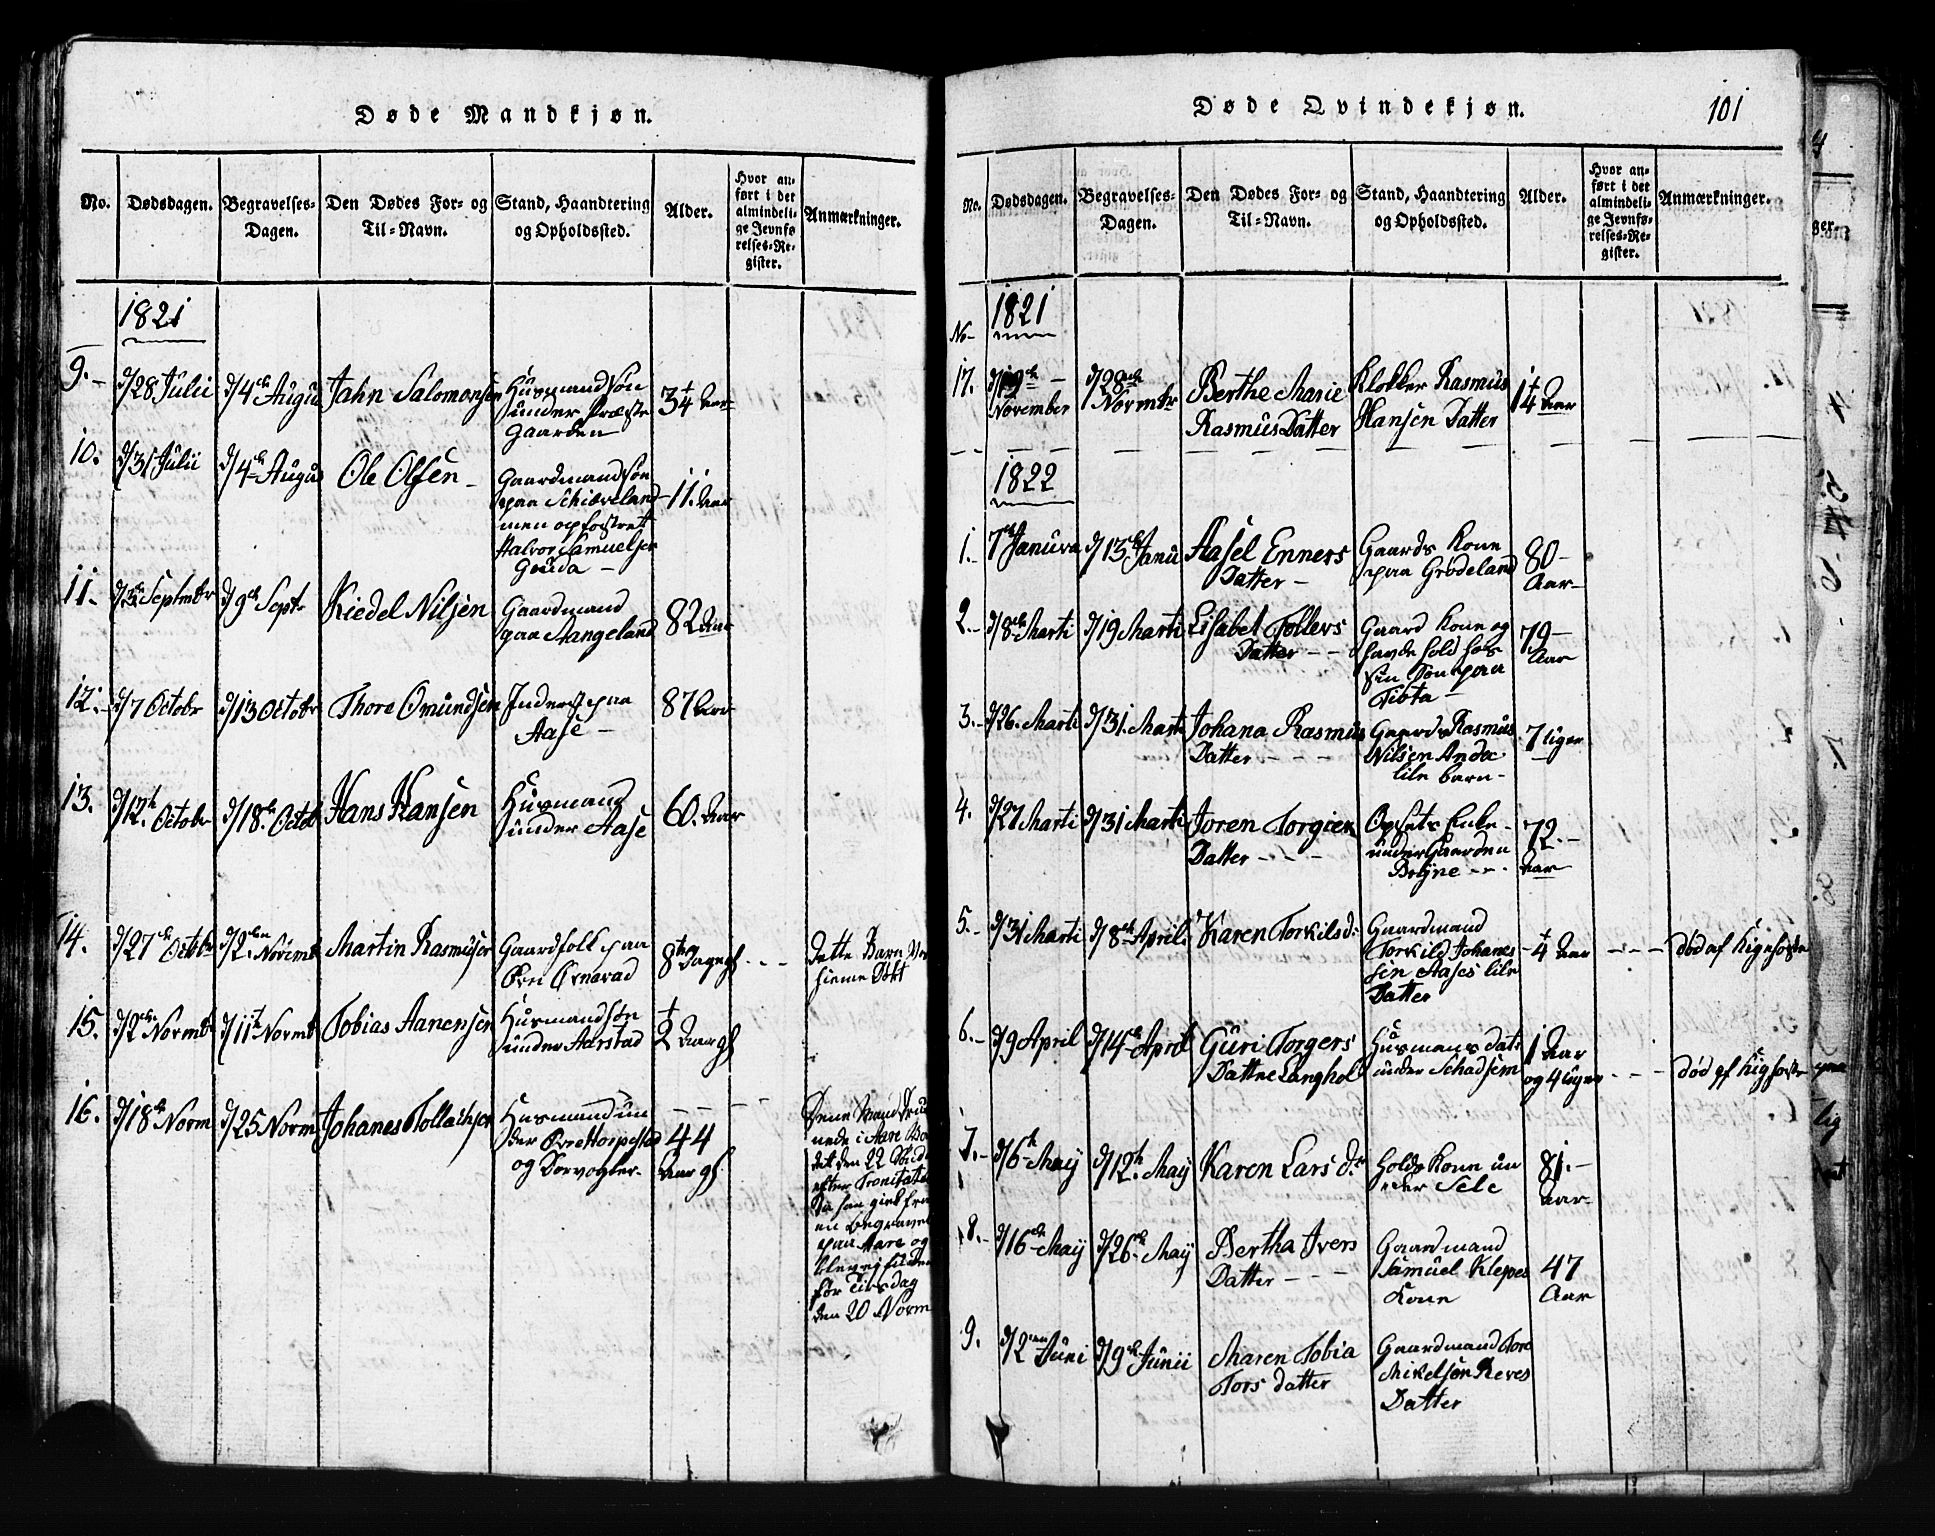 Døde Mandkjøn.
No.
Dødsdagen.
Begravelses-
Dagen.
Den Dødes For- og
Til-Navn.
Stand, Haandtering
og Opholdssted.
Alder.
Hvor an-
ført i det
almindeli-
ge Jevnfø-
relses-Re-
gister.
Anmærkninger.
1821
9.
d/28 Julii
d/4de Augu
Jahn Salomonsen
Husmand Søn
under Præste
Gaarden
3/4 Aar
10.
d/31 Julii
d/4de Augus
Ole Olsen
Gaardmand Søn
paa Schiæveland
men opfostret
Halvor Samuelsen
11. Aar
11.
Septmbr
d/9de Septr
Kiedel Nilsen
Gaardmand
paa Aangeland
82 Aar
12.
d/7 Octobr
d/13 Octobr
Thore Omundsen
Inderst paa
Aase
87 Aar
13.
d/12th Octobr
d/18de Octob
Hans Hansen
Husmand
under Aase
60. Aar
14.
d/27de Octobr
d/2den Novmb
Martin Rasmusen
Gaardfolk paa
8te Dage gl
dette Barn var
hieme Døbt
15.
d/2den Novmb
d/11th Novmb
Tobias Aanensen
Husmandsøn
under Aarstad
2 Aar gl
16.
d/18de Novm
d/25 Novm
Johanes Tollachsen
Husmand un
der
og
44
Aar gl
den 22
efter Trinitatis
Da han gick fra
en begravel
paa Aare og
for Tirsdag
den 20 Novm
Døde Qvindekjøn.
101
No.
Dødsdagen.
Begravelses-
Dagen.
Den Dødes For- og
Til-Navn.
Stand, Haandtering
og Opholdssted.
Alder.
Hvor an-
ført i det
almindeli-
ge Jevnfø-
relses-Re-
gister.
Anmærkninger.
No
1821
17.
November
d/28de
Novmbr
Berthe Marie
Rasmus Datter
Klokker Rasmus
Hansen Datter
1/4 Aar
1822
1.
7de Januva
d/13de Janu
Aasel Enners
Datter
Gaards Kone
paa Grødeland
80
Aar
2.
d/8de Marti
d/19 Marti
Lisabet Tollevs
Datter
Gaard Kone og
havde hold hos
sin Søn paa
Tiøta
79
Aar
3.
d/26. Marti
d/31. Marti
Johana Rasmus
Datter
Gaards Rasmus
Nilsen Anda
lile barn
7 Uger
4.
d/27 Marti
d/31 Marti
Joren Torgiers
Datter
Opsets Enke
under Gaarden
Bryne
72.
Aar
5.
d/31 Marti
d/8de April.
Karen Torkilsd:
Gaardmand
Torkild Johanes
sen Aases lile
Datter
4 Aar
død af Kigehoste
6.
d/9 April
d/14de April
Guri Torgers
Datter Langhol
Husmans datr
under Schadsem
1 Aar
og 4 Uger
død af Kighoste
7.
d/6th May
d/12th May
Karen Lars dr
Holds Kone un
der Sele
81.
Aar
8.
d/16de May
d/26de May
Bertha Ivers
Datter
Gaardmand
Samuel Klepes
Kone
47
Aar
9.
d/2den Juni
d/9de Junii
Maren Tobia
Tors datter
Gaardmand Tore
Mikelsøn Reves
Datter